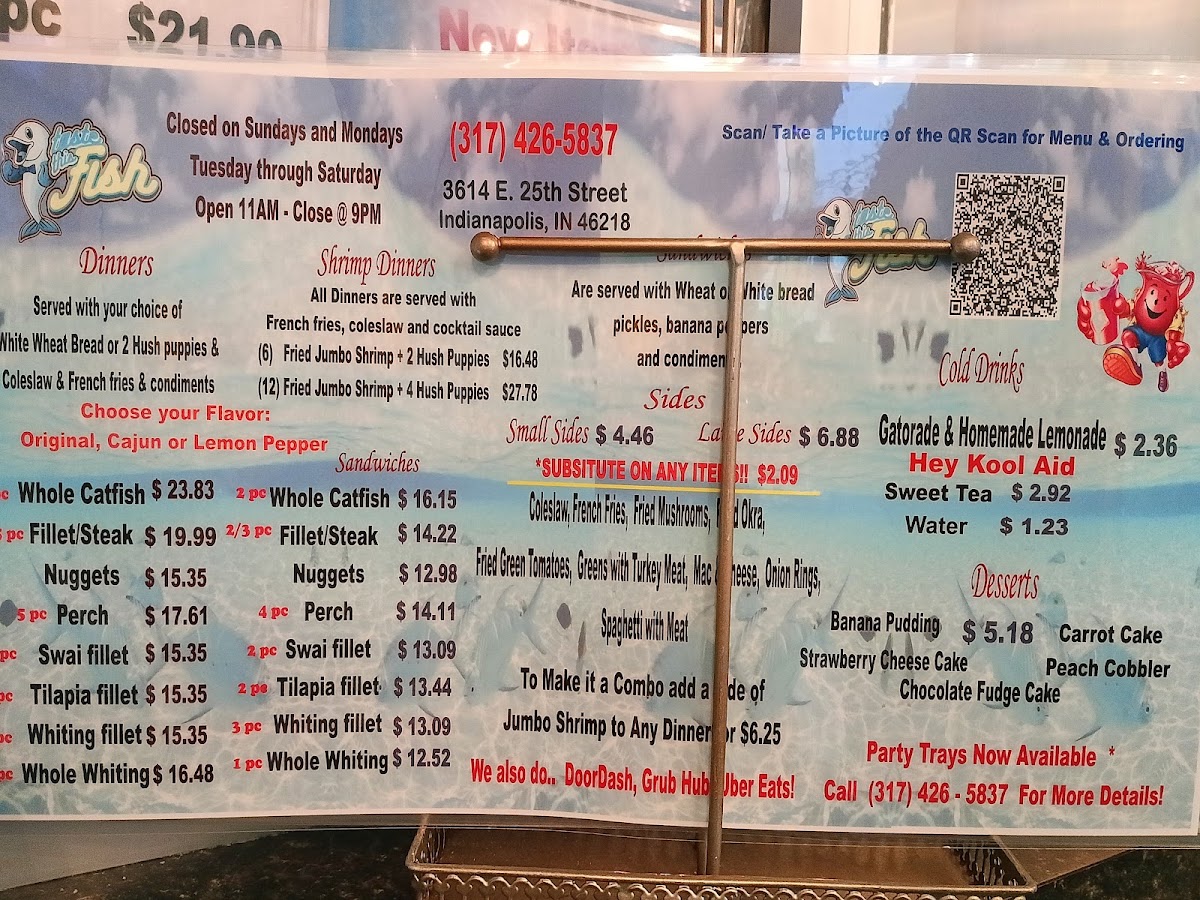 pc $21.90
New Item
taste this Fish
Closed on Sundays and Mondays
Tuesday through Saturday
Open 11AM - Close @ 9PM
(317) 426-5837
3614 E. 25th Street
Indianapolis, IN 46218
Scan/ Take a Picture of the QR Scan for Menu & Ordering
taste this Fish
Dinners
Served with your choice of
White Wheat Bread or 2 Hush puppies &
Coleslaw & French fries & condiments
Choose your Flavor:
Original, Cajun or Lemon Pepper
Whole Catfish $ 23.83
pc Fillet/Steak $ 19.99
Nuggets $ 15.35
5 pc Perch $ 17.61
pc Swai fillet $ 15.35
pc Tilapia fillet $ 15.35
pc Whiting fillet $ 15.35
pc Whole Whiting $ 16.48
Shrimp Dinners
All Dinners are served with
French fries, coleslaw and cocktail sauce
(6) Fried Jumbo Shrimp + 2 Hush Puppies $16.48
(12) Fried Jumbo Shrimp + 4 Hush Puppies $27.78
Sandwiches
2 pc Whole Catfish $ 16.15
2/3 pc Fillet/Steak $ 14.22
Nuggets $ 12.98
4 pc Perch $ 14.11
2 pc Swai fillet $ 13.09
2 pc Tilapia fillet $ 13.44
3 pc Whiting fillet $ 13.09
1 pc Whole Whiting $ 12.52
Sandwiches
Are served with Wheat or White bread
pickles, banana peppers
and condiment
Sides
Small Sides $ 4.46 Large Sides $ 6.88
*SUBSITUTE ON ANY ITEMS!! $2.09
Coleslaw, French Fries, Fried Mushrooms, Fried Okra,
Fried Green Tomatoes, Greens with Turkey Meat, Mac Cheese, Onion Rings,
Spaghetti with Meat
To Make it a Combo add a side of
Jumbo Shrimp to Any Dinner for $6.25
We also do.. DoorDash, Grub Hub Uber Eats!
Cold Drinks
Gatorade & Homemade Lemonade $ 2.36
Hey Kool Aid
Sweet Tea $ 2.92
Water $ 1.23
Desserts
Banana Pudding $ 5.18 Carrot Cake
Strawberry Cheese Cake Peach Cobbler
Chocolate Fudge Cake
Party Trays Now Available *
Call (317) 426 - 5837 For More Details!